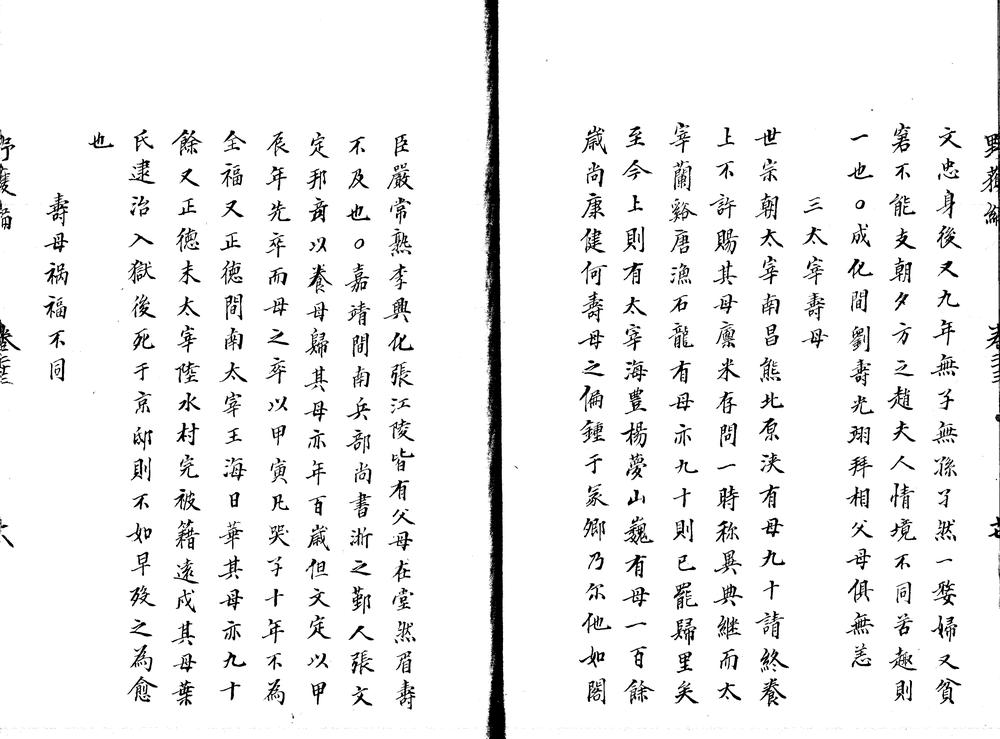 文忠身後又九年無子無孫孑然一嫠婦又貧
窘不能支朝夕方之趙夫人情境不同苦趣則
一也○成化間劉壽光珝拜相父母俱無恙
三太宰壽母
世宗朝太宰南昌熊北原浹有母九十請終養
上不許賜其母廩米存問一時称異典繼而太
宰蘭谿唐漁石龍有母亦九十則已罷歸里矣
至今上則有太宰海豐楊夢山巍有母一百餘
歲尚康健何壽母之偏鍾于冡鄉乃尔他如閣
臣嚴常熟李興化張江陵皆有父母在堂然眉壽
不及也○嘉靖間南兵部尚書浙之鄞人張文
定邦奇以養母歸其母亦年百歲但文定以甲
辰年先卒而母之卒以甲寅凡哭子十年不為
全福又正德間南太宰王海日華其母亦九十
餘又正德末太宰陸水村完被籍遠戍其母葉
氏逮治入獄後死于京邸則不如早歿之為愈
也
壽母禍福不同